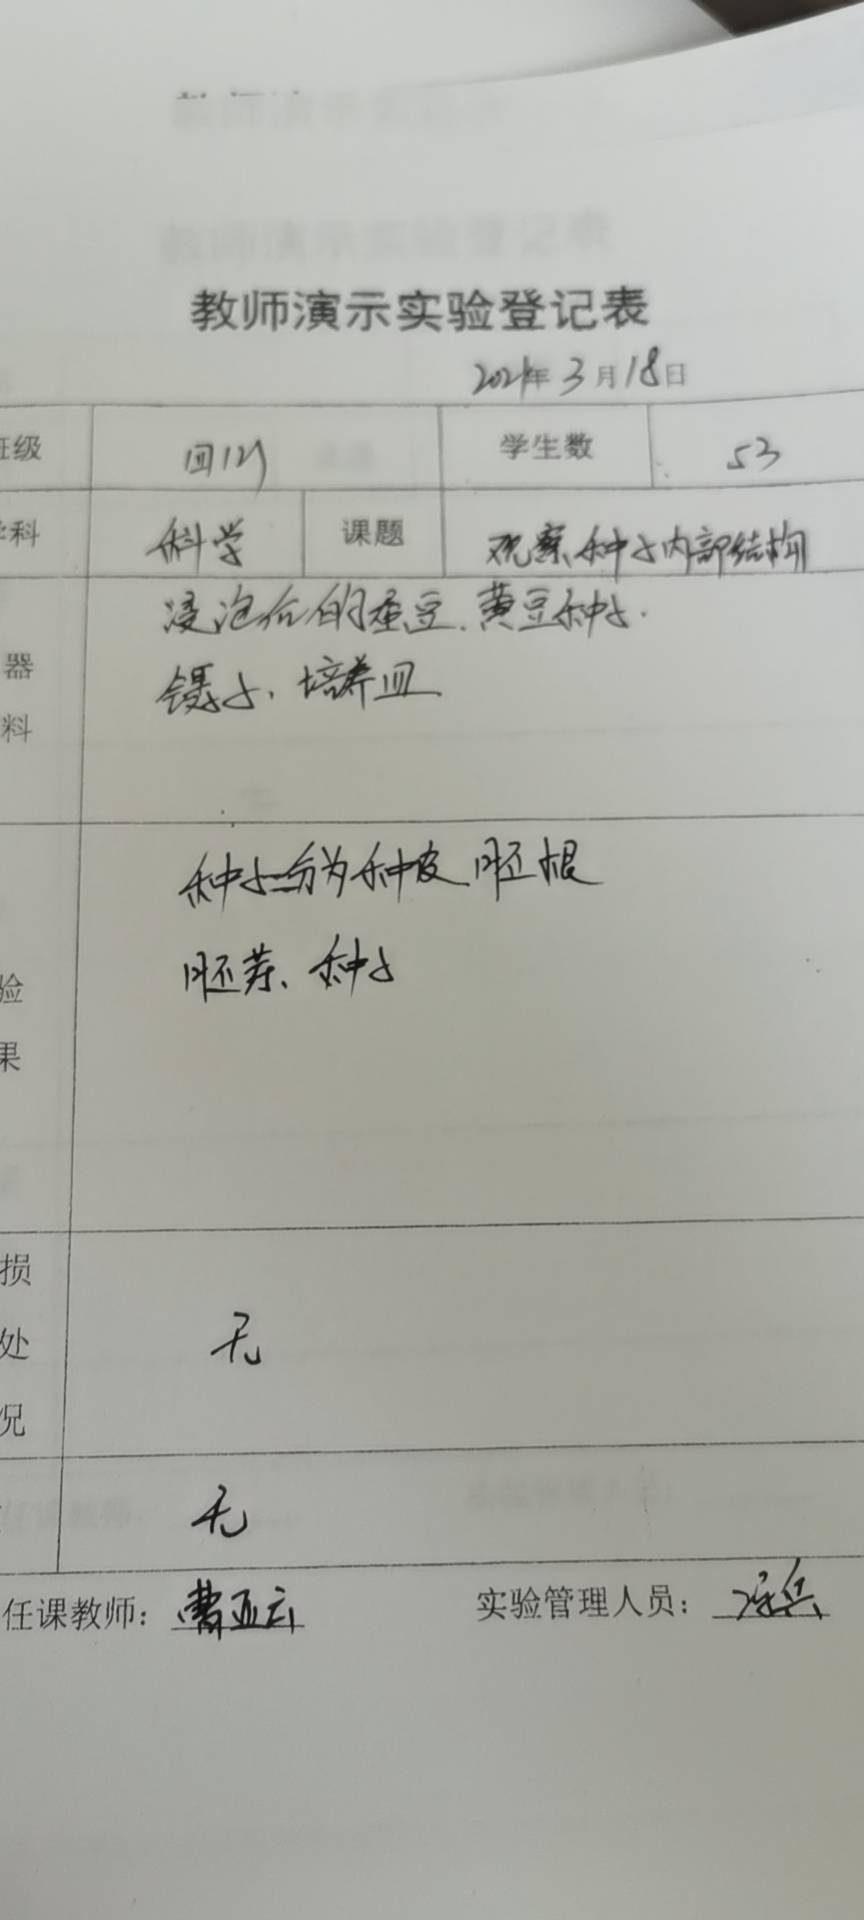 教师演示实验登记表
2021年3月18日
班级 四(2) 学生数 53
学科 科学 课题 观察种子内部结构
浸泡后的蚕豆、黄豆种子.
器
镊子、培养皿
料
种子分为种皮、胚根
胚芽、种子
验
果
损
处 无
况
无
任课教师: 曹亚云 实验管理人员: